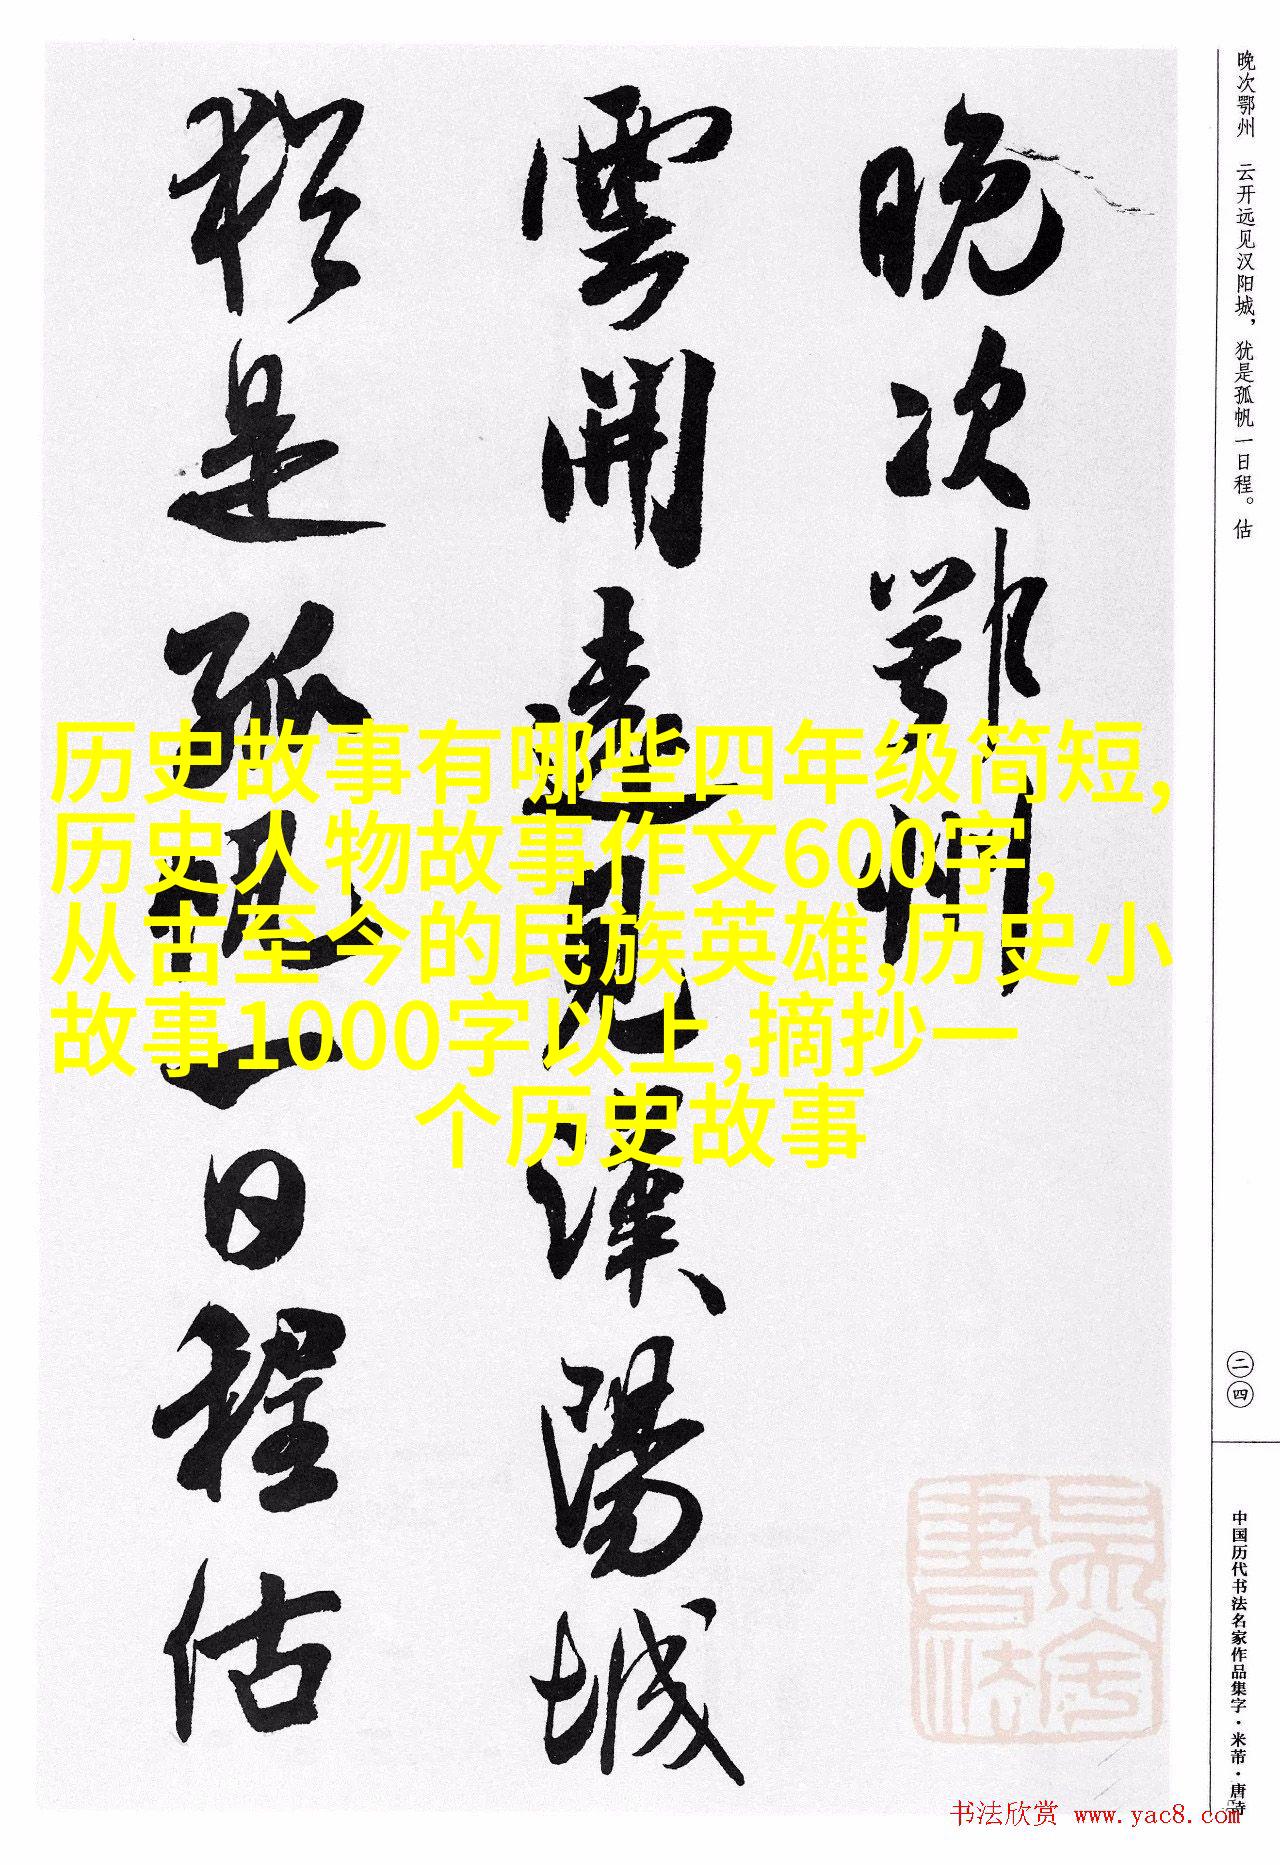 晚次鄂州
雲開遠見漢陽城
猶是孤帆一日程估
晚次鄂州 云开远见汉阳城，犹是孤帆一日程。估
历史故事有哪些四年级简短,
历史人物故事作文600字,
从古至今的民族英雄,历史小
故事1000字以上,摘抄一
个历史故事
二四
中国历代书法名家作品集字·米芾·唐诗
书法欣赏 www.yac8.com